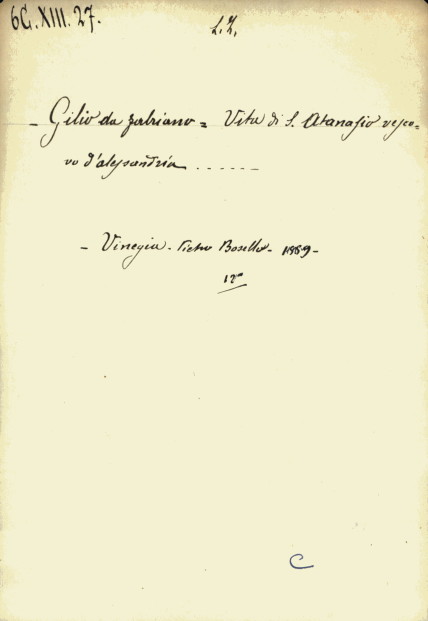 6G.XIII.27.
L.Z.
- Gilio da fabriano = Vita di S. Atanasio vesco-
vo d'alessandria ......
- Vinegia - Pietro Bosello - 1559 -
12°
C